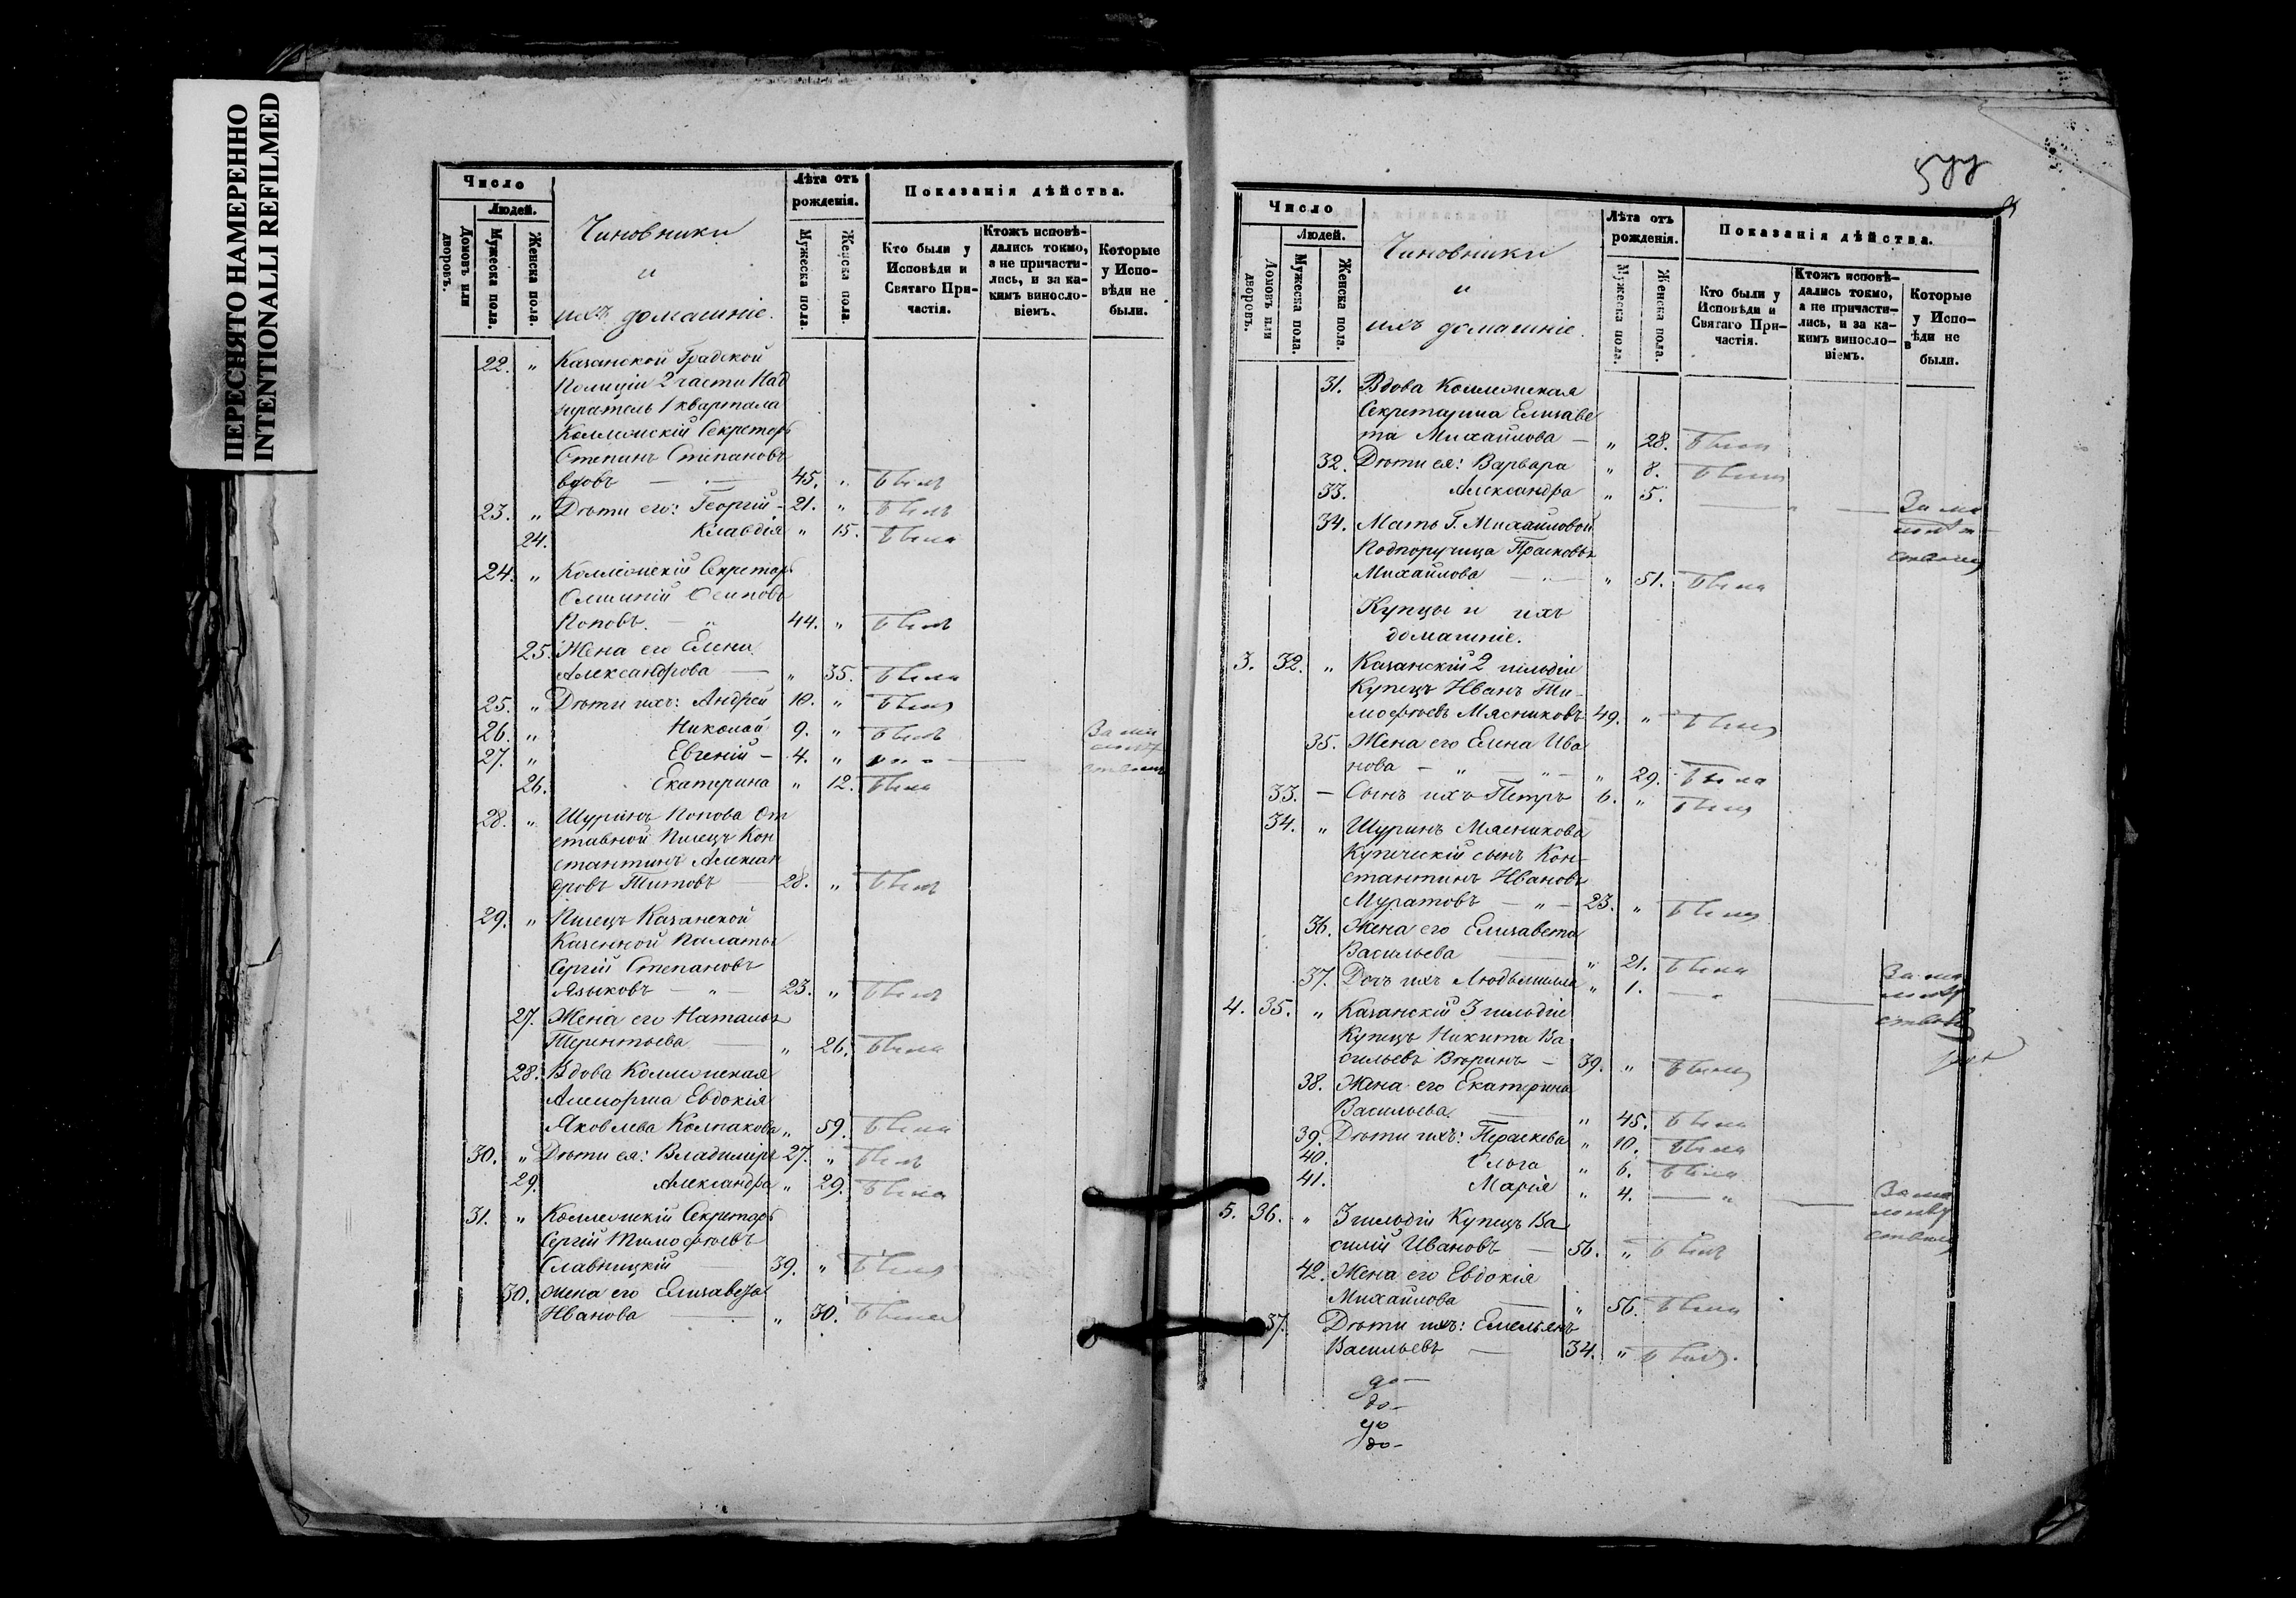 ПЕРЕСНЯТО НАМЕРЕННО
INTENTIONALLI REFILMED
Число
Людей.
Домовъ или дворовъ.
Мужеска пола.
Женска пола.
Чиновники
и
ихъ домашніе.
Лѣта отъ рожденія.
Мужеска пола.
Женска пола.
Показанія дѣйства.
Кто были у Исповѣди и Святаго Причастія.
Ктожъ исповѣдались токмо, а не причастились, и за какимъ винословіемъ.
Которые у Исповѣди не были.
22. „ Казанской Градской
Полиціи 2 части Над
зиратель 1 квартала
Коллежскій Секретарь
Степановъ
вдовъ — 45. „ былъ
23. „ Дѣти его: Георгій - 21. „ былъ
24. Клавдія „ 15. была
24. „ Коллежскій Секретарь
Осиповъ
Поповъ. — „ 44. „ былъ
25. Жена его Елена
Александрова — „ 35. была
25. „ Дѣти ихъ: Андрей 10. „ былъ
26. „ Николай 9. „ былъ
27. „ Евгеній - 4. „ — За мало
лѣт
ствомъ
26. Екатерина „ 12. была
28. „ Шуринъ Попова От
ставной Писецъ Кон
стантинъ Алексан
дровъ Титовъ — 28. „ былъ
29. „ Писецъ Казанской
Казенной Палаты
Сергій Степановъ
Языковъ — „ — 23. „ былъ
27. Жена его Наталья
Терентьева — „ 26. была
28. Вдова Коллежская
Ассесорша Евдокія
Яковлева Колпакова „ 59. была
30. „ Дѣти ея: Владиміръ 27. „ былъ
29. Александра „ 29. была
31. „ Коллежскій Секретарь
Сергій Тимофѣевъ
Славницкій 39. „ былъ
30. Жена его Елизавета
Иванова — „ 30. была
577
Число
Людей.
Домовъ или дворовъ.
Мужеска пола.
Женска пола.
Чиновники
и
ихъ домашніе.
Лѣта отъ рожденія.
Мужеска пола.
Женска пола.
Показанія дѣйства.
Кто были у Исповѣди и Святаго Причастія.
Ктожъ исповѣдались токмо, а не причастились, и за какимъ винословіемъ.
Которые у Исповѣди не были.
31. Вдова Коллежская
Секретарша Елизаве
та Михайлова — „ 28. была
32. Дѣти ея: Варвара „ 8. была
33. Александра „ 5. — „ — За ма
лолѣт
ствомъ
34. Мать Г. Михайловой
Подпоручица Прасковья
Михайлова — „ 51. была
Купцы и ихъ
домашніе.
3. 32. „ Казанскій 2 гильдіи
Купецъ Иванъ Ти-
мофѣевъ Мясниковъ 49. „ былъ
35. Жена его Елена Ива
нова — „ — „ — „ 29. была
33. — Сынъ ихъ Петръ 6. „ былъ
34. „ Шуринъ Мясникова
Купеческій сынъ Кон-
стантинъ Ивановъ
Муратовъ — „ — 23. „ былъ
36. Жена его Елизавета
Васильева — „ 21. была
37. Дочь ихъ Людьмилла „ 1. — „ — За ма
лолѣт
ствомъ
4. 35. „ Казанскій 3 гильдіи
Купецъ Никита Ва
сильевъ Вѣринъ — 39. „ былъ
38. Жена его Екатерина
Васильева. — „ 45. была
39. Дѣти ихъ: Параскева „ 10. была
40. Ольга „ 6. была
41. Марія „ 4. — „ — За ма
лолѣт
ствомъ
5. 36. „ 3 гильдіи Купецъ Ва
силій Ивановъ — 56. „ былъ
42. Жена его Евдокія
Михайлова — „ 56. была
37. Дѣти ихъ: Емельянъ
Васильевъ — 34. „ былъ.
до-
до-
до
до-